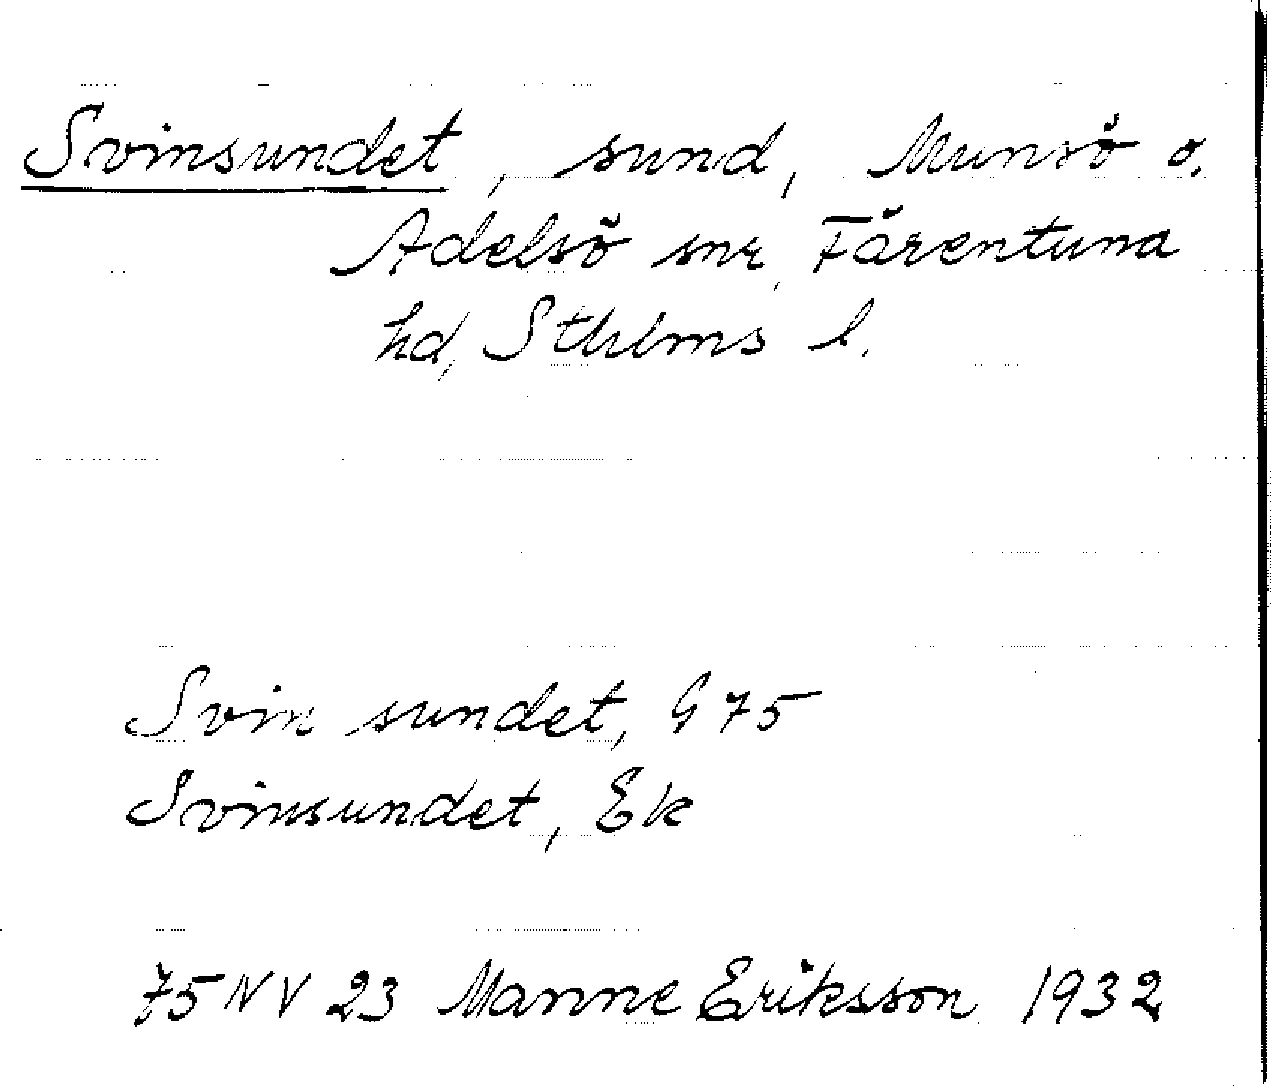 Svinsundet, sund, Munsö o.
Adelsö snr, Färentuna
hd, Sthlms l.
Svin sundet, G 75
Svinsundet, Ek
75 NV 23 Manne Eriksson 1932